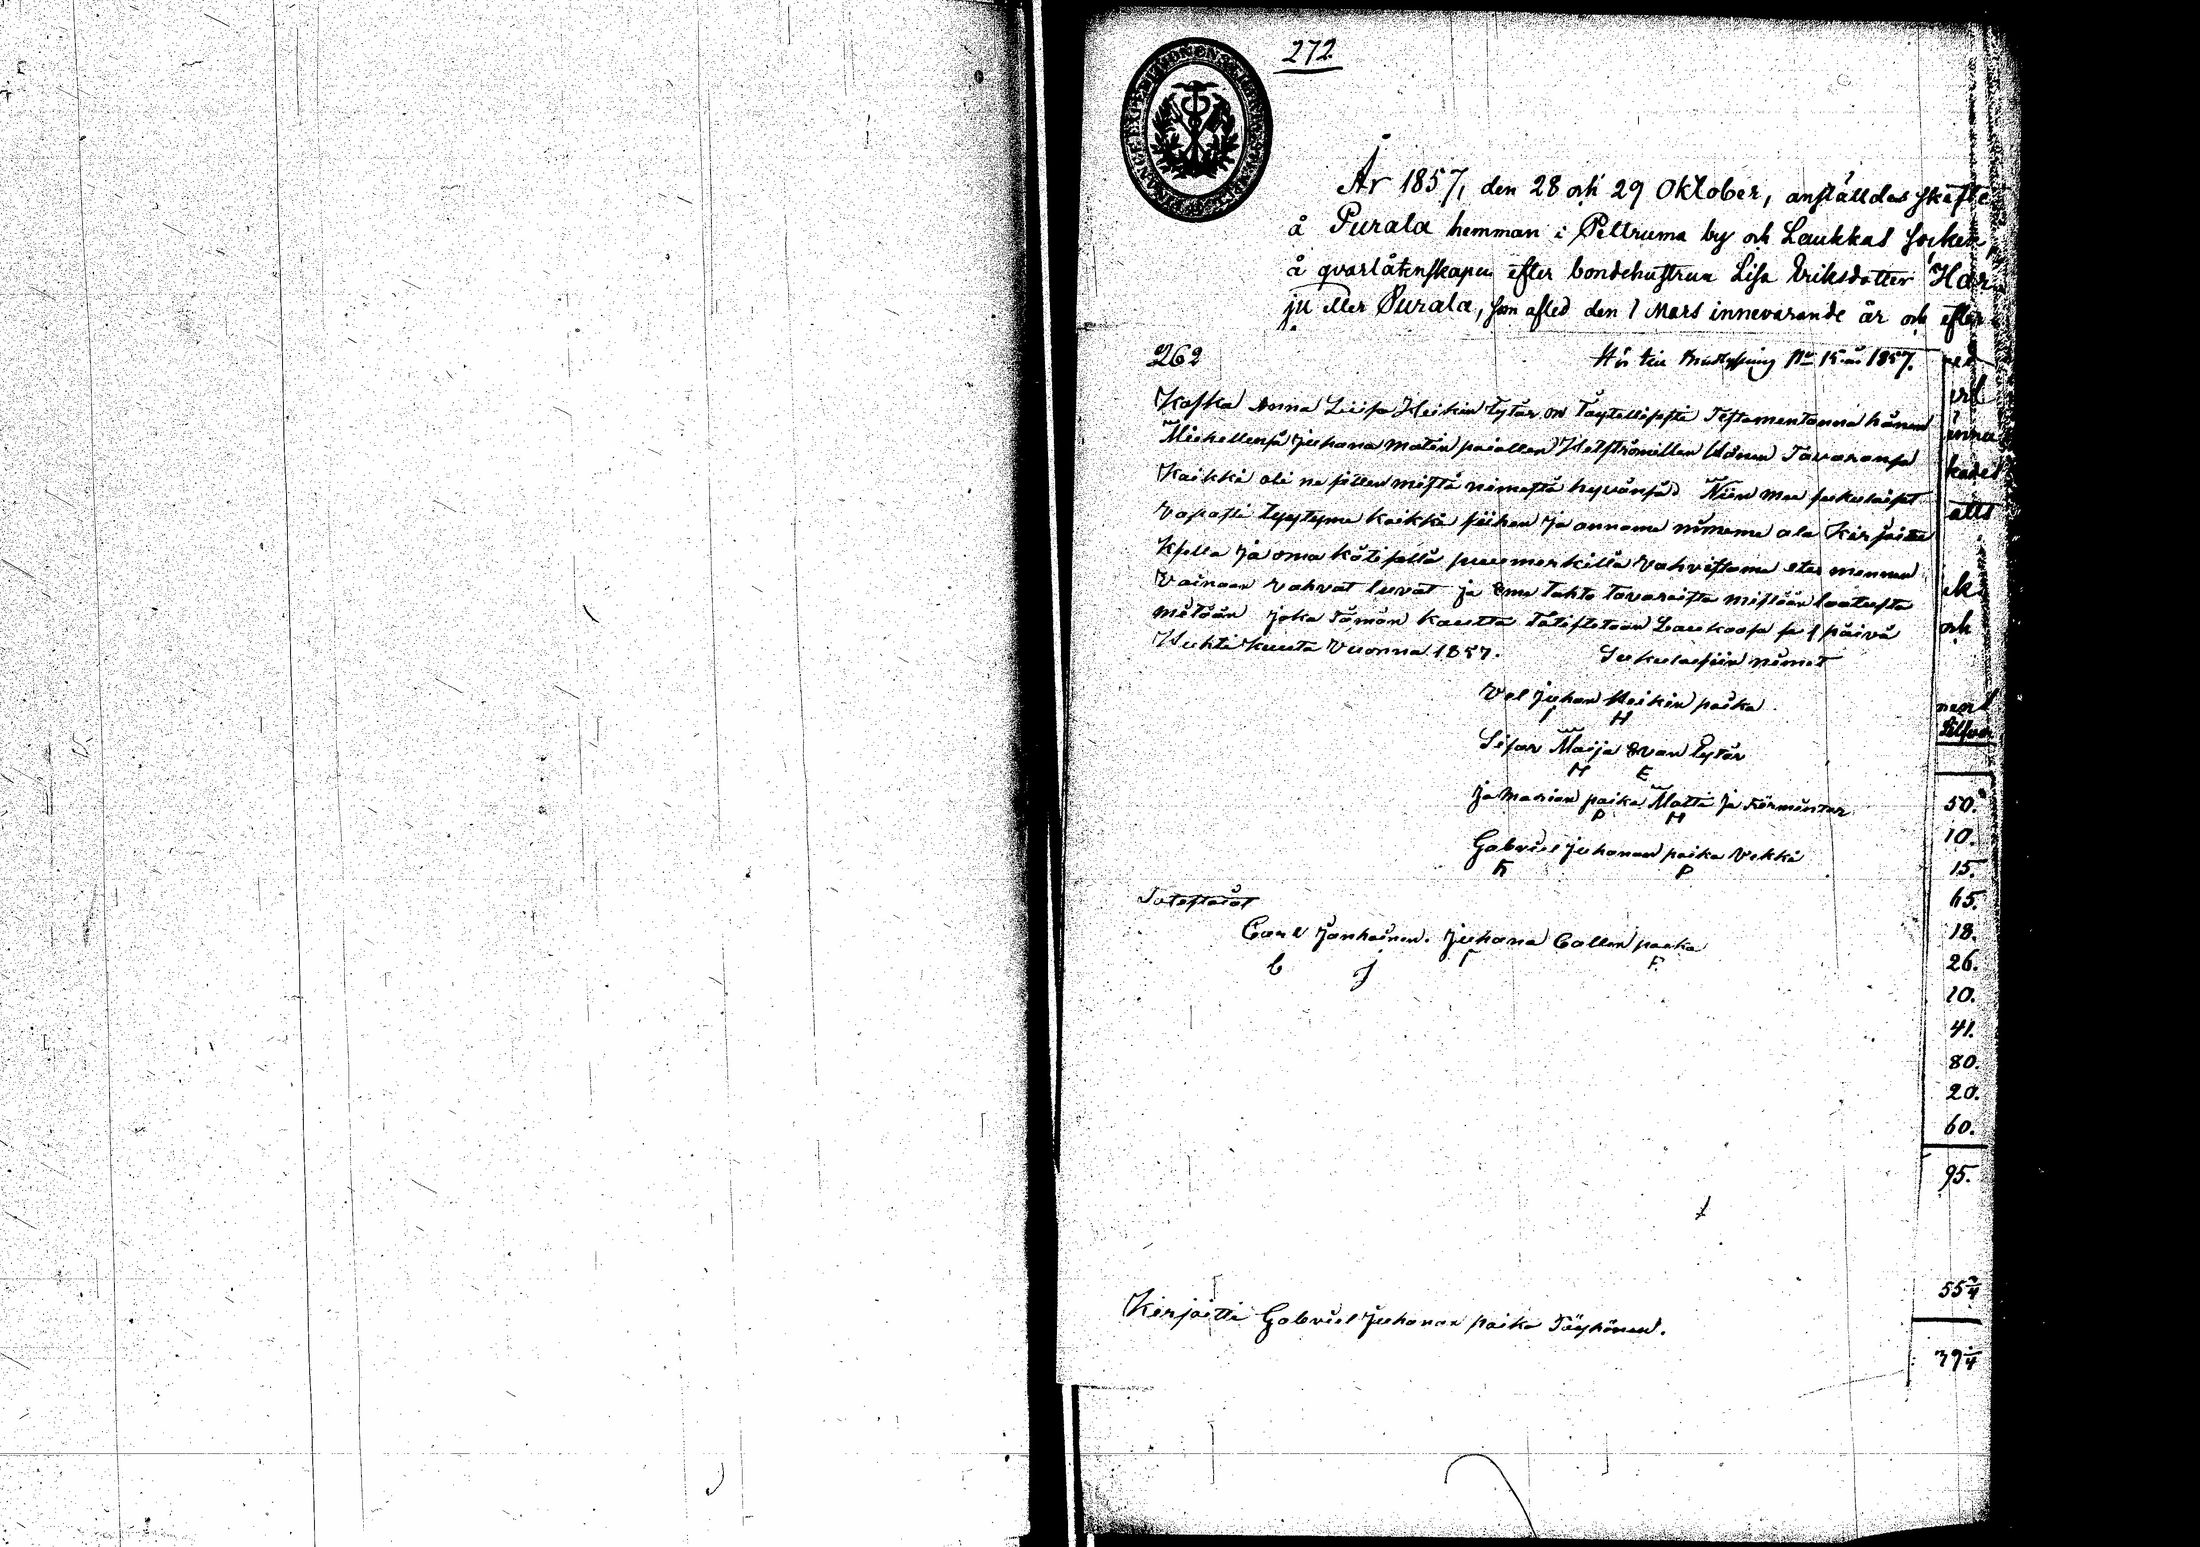 272
År 1857, den 28 och 29 Oktober, anställdes skifte
å Purala hemman i Peltruma by och Laukkas socken
å qvarlåtenskapen efter bondehustrun Lisa Eriksdotter Har
ju eller Purala, som afled den 1 Mars innevarande år och efter
262
15 1857.
Koska Anna Liisa Heikin tytär on Täytellissstä Testamentanna hänen
Miehellensä Juhana Matin pojallen Helströmillen Tavaransa
Kaikki oli ne sillen mistä nimestä hyvänsä Niin me sukulaiset
Vapasti tyytyme kaikki siihen ja annome nimeme ala Kirjoita
Ksella ja oma kätisellä puumerkillä vahvistame etei mennen
Vainaan vahvat luvat ja eme tahto tavaroista mistään laatusta
mitään joka tämän kautta Totistetaan Laukoosa se 1 päivä
Huhti kuuta Vuonna 1857. Sukulaisiin nimet
Vel Juhan Heikin poika
I H
Sisar Maija Evan Tytär
M E
ja Marian poika Matti ja
P M
Gabriel Juhanan poika Vekki
K P
Totistavat
Carl Janhoinen. Juhana Callen poika
C J I P.
Kirjoitti Gabriel Juhanan poika Töyhönen.
och
50.
10.
15.
65.
18.
26.
10.
41.
80.
20.
60.
95.